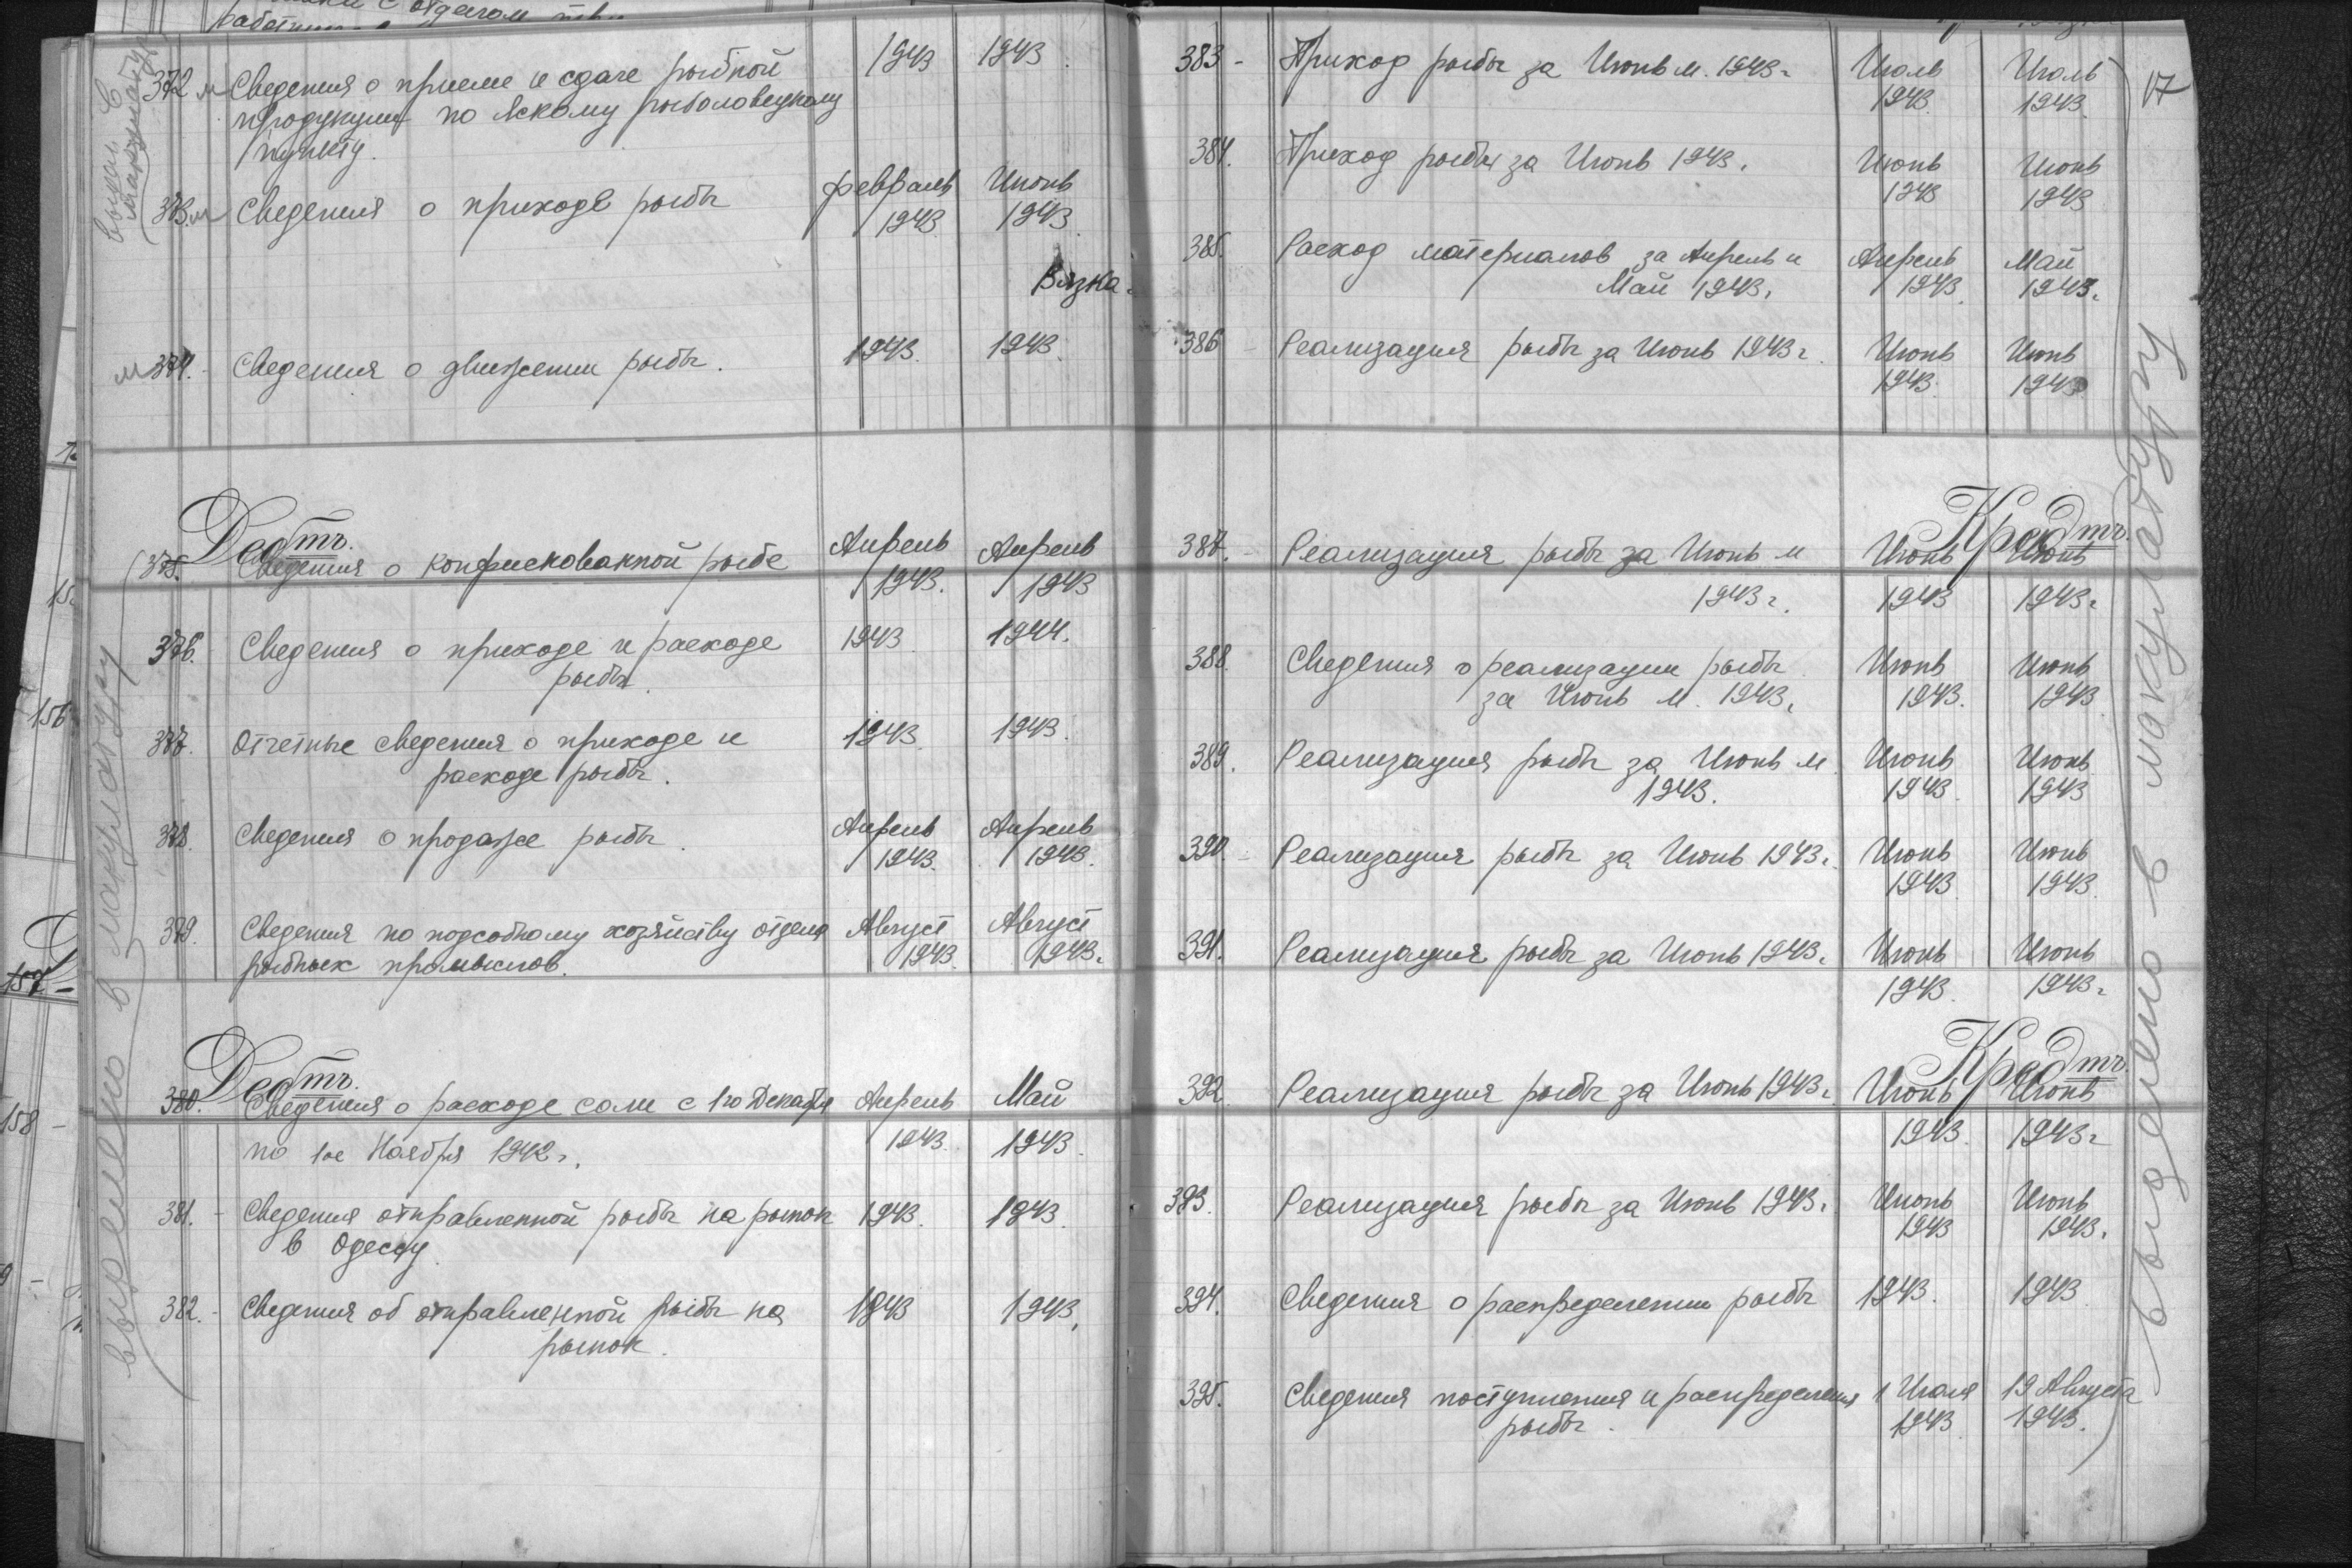 372 м Сведения о приеме и сдаче рыбной 1943 1943.
продукции по Яскому рыболовецкому
пункту.
373. м Сведения о приходе рыбы февраль Июнь
1943 1943
Вязка.
м 374. Сведения о движении рыбы. 1943. 1943
Дебтъ.
375. Сведения о конфискованной рыбе Апрель Апрель
1943. 1943
376. Сведения о приходе и расходе 1943 1944.
рыбы.
377. Отчетные сведения о приходе и 1943. 1943.
расходе рыбы.
378. Сведения о продаже рыбы. Апрель Апрель
1943. 1943.
379. Сведения по подсобному хозяйству отдела Август Август
рыбных промыслов. 1943. 1943.
Дебтъ.
380. Сведения о расходе соли с 1го Декабря Апрель Май
по 1ое Ноября 1942 г. 1943. 1943.
381. - Сведения отправленной рыбы на рынок 1943. 1943.
в Одессу.
382. - Сведения об отправленной рыбы на 1943 1943.
рынок.
выделено в макулатуру
17
383 - Приход рыбы за Июнь м. 1943 г. Июль Июль
1943. 1943.
384. Приход рыбы за Июнь 1943. Июнь Июнь
1943 1943
385. Расход материалов за Апрель и Апрель Май
Май 1943. 1943. 1943.
386 Реализация рыбы за Июнь 1943 г. Июнь Июнь
1943. 1943
Кредтъ.
387. - Реализация рыбы за Июнь м Июнь Июнь
1943 г. 1943 1943 г.
388. Сведения о реализации рыбы Июнь Июнь
за Июнь м. 1943. 1943. 1943
389. Реализация рыбы за Июнь м. Июнь Июнь
1943. 1943. 1943
390. Реализация рыбы за Июнь 1943 г. Июнь Июнь
1943 1943
391. Реализация рыбы за Июнь 1943. Июнь Июнь
1943. 1943 г.
Кредтъ.
392 Реализация рыбы за Июнь 1943 г. Июнь Июнь
1943. 1943 г
393. Реализация рыбы за Июнь 1943. Июнь Июнь
1943 1943.
394. Сведения о распределении рыбы 1943. 1943
395. Сведения поступления и распределения 1 Июля 19 Августа
рыбы. 1943 1943.
выделено в макулатуру